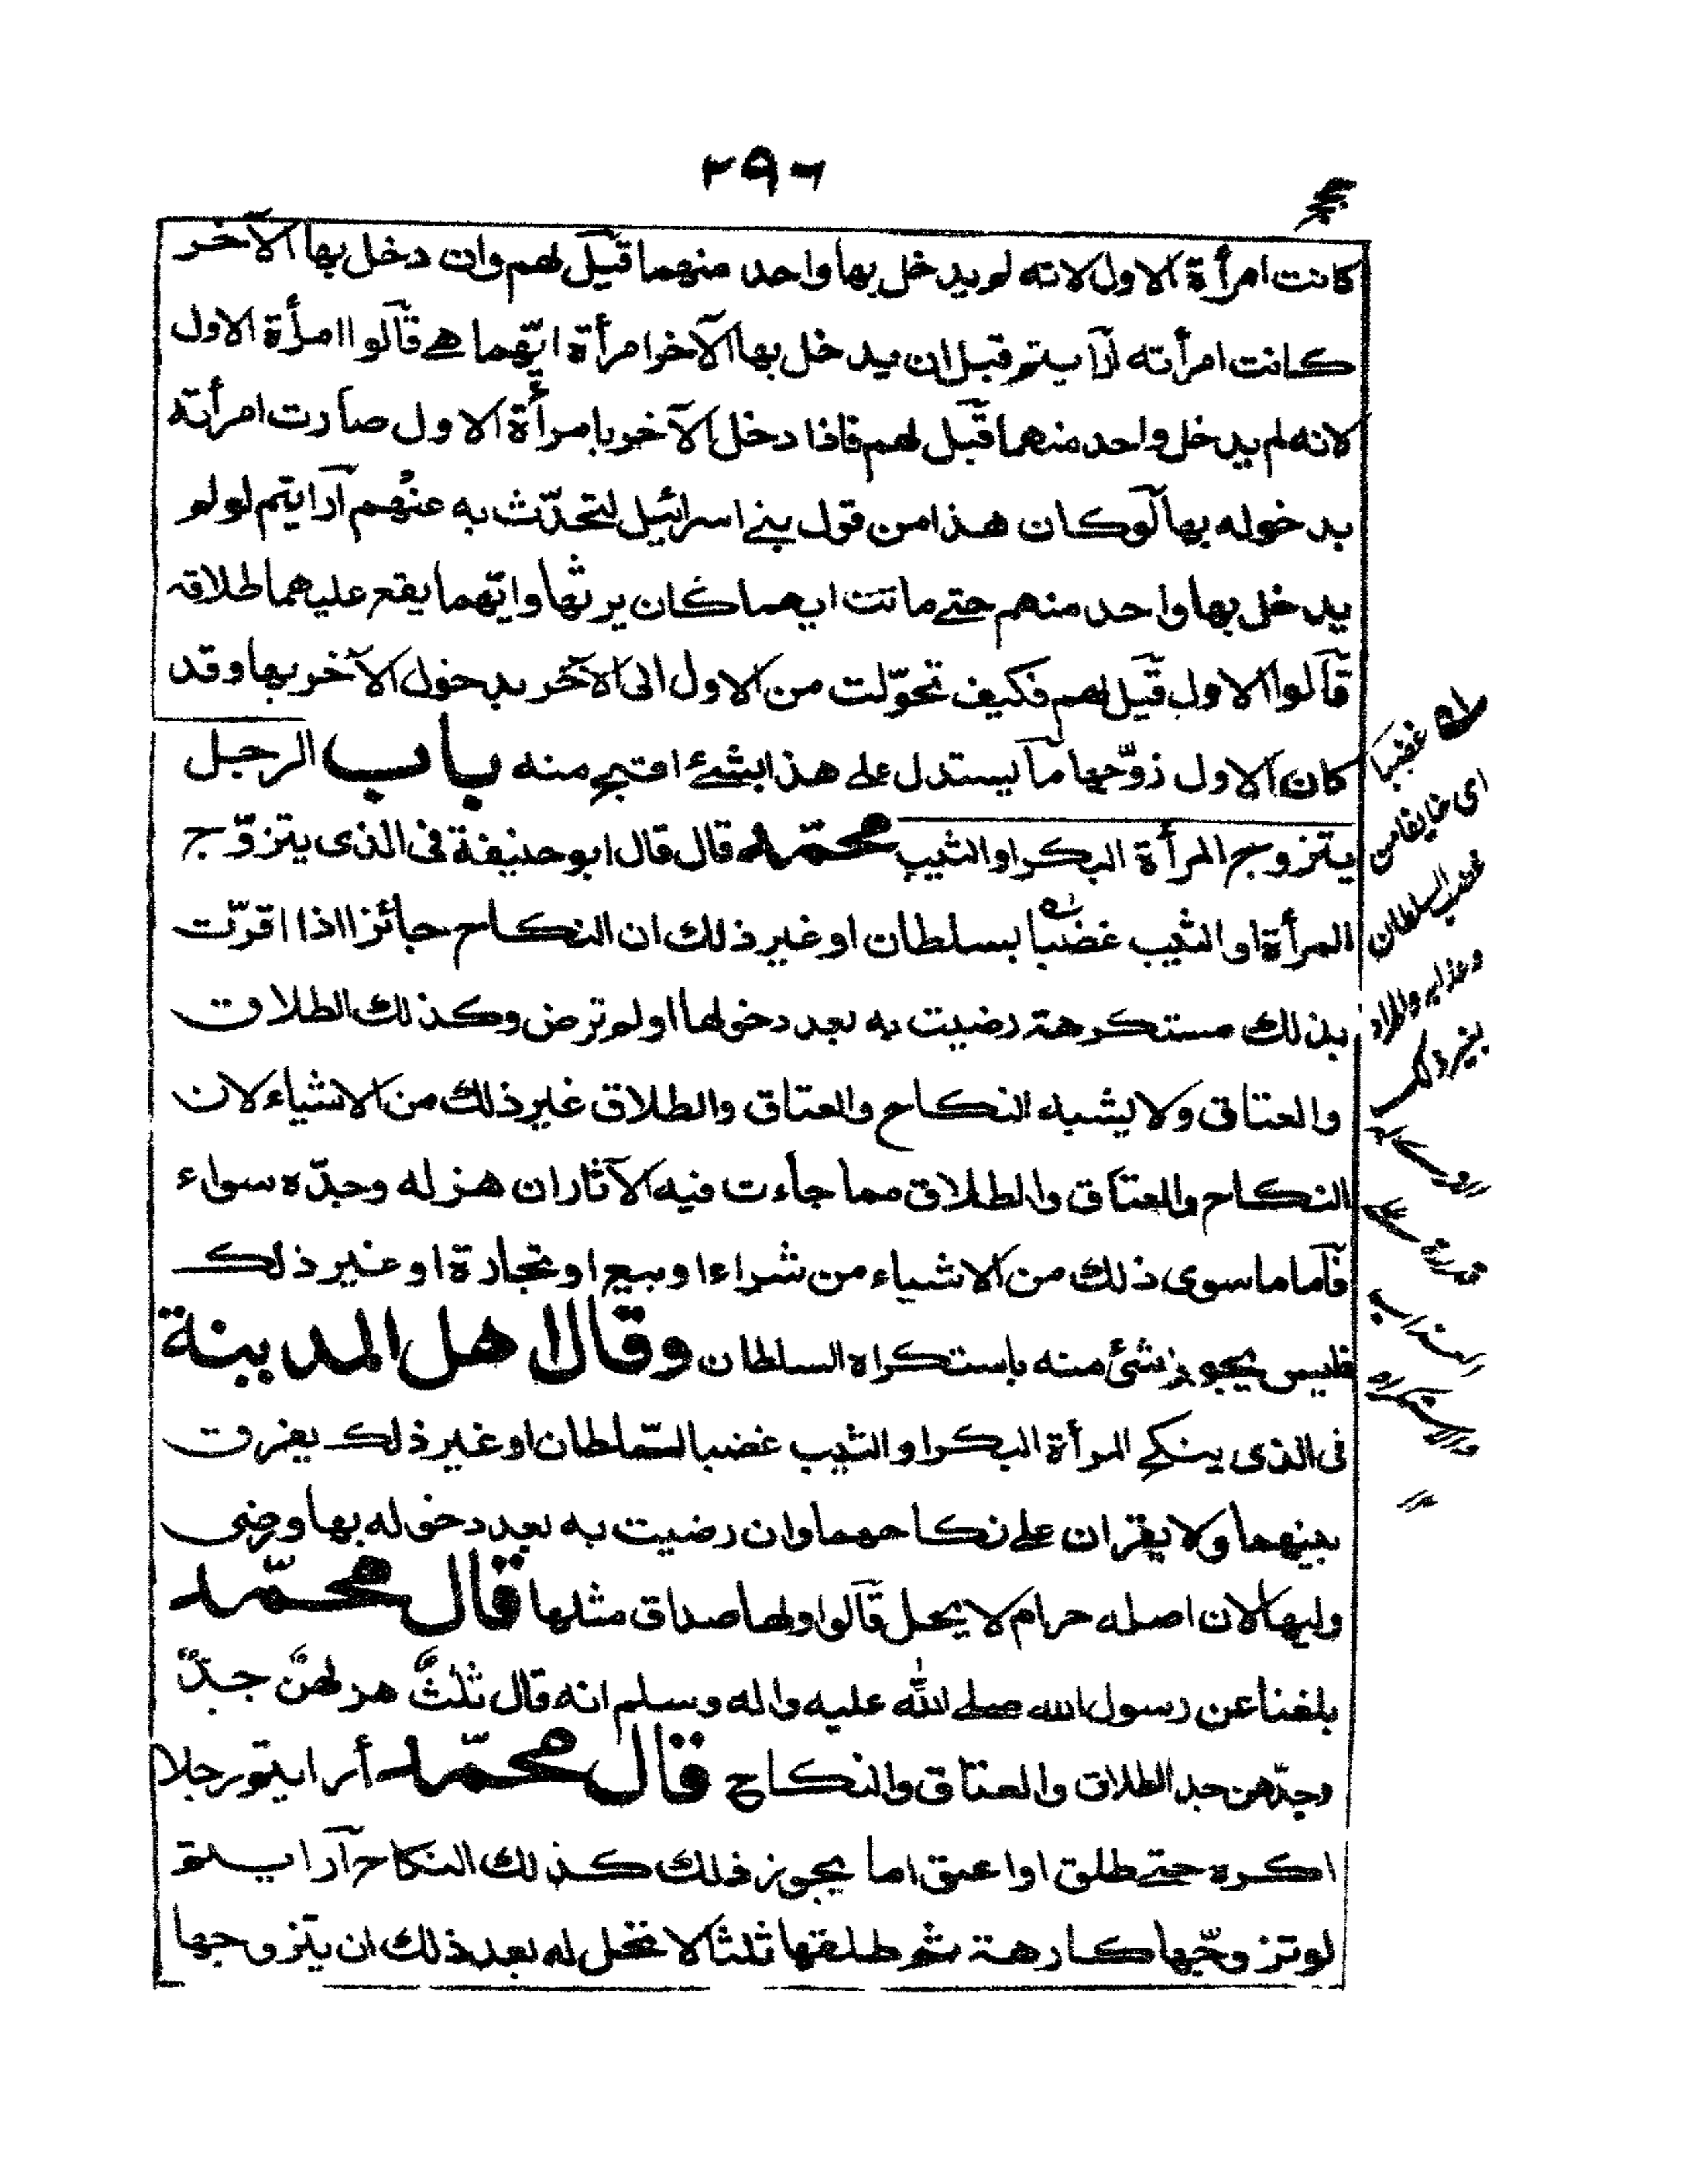 ٢٩٦
كانت امرأة الاول لانه لم يدخل بها واحد منهما قيل لهم وان دخل بها الآخر
كانت امرأته أرأيتم قبل ان يدخل بها الآخر امرأة ايّهما هي قالوا امرأة الاول
لانه لم يدخل واحد منهما قيل لهم فاذا دخل الآخر بامرأة الاول صارت امرأته
بدخوله بها لو كان هذا من قول بني اسرائيل لتحدّث به عنهم أرايتم لو لم
يدخل بها واحد منهم حتى ماتت ايهما كان يرثها وايّهما يقع عليهما طلاقه
قالوا الاول قيل لهم فكيف تحوّلت من الاول الى الآخر بدخول الآخر بها وقد
كان الاول زوّجها ما يستدل على هذا بشئ اقبح منه باب الرجل
يتزوج المرأة البكر او الثيب محمّد قال قال ابو حنيفة فى الذى يتزوّج
المرأة او الثيب غضبا بسلطان او غير ذلك ان النكاح جائز اذا اقرّت
بذلك مستكرهة رضيت به بعد دخولها او لم ترض وكذلك الطلاق
والعتاق ولا يشبه النكاح والعتاق والطلاق غير ذلك من الاشياء لان
النكاح والعتاق والطلاق مما جاءت فيه الآثار ان هزله وجدّه سواء
فاما ما سوى ذلك من الاشياء من شراء او بيع او تجارة او غير ذلك
فليس يجوز شئ منه باستكراه السلطان وقال اهل المدينة
فى الذى ينكح المرأة البكر او الثيب غضبا لسّلطان او غير ذلك يفرق
بينهما ولا يقران على نكاحهما وان رضيت به بعد دخوله بها ورضى
وليها لان اصله حرام لا يحل قالوا ولها صداق مثلها قال محمّد
بلغنا عن رسول الله صلى الله عليه واله وسلم انه قال ثلثٌ هزلهنّ جدٌّ
وجدّهن جد الطلاق والعتاق والنكاح قال محمّد أرايتم رجلا
اكره حتى طلق او اعتق اما يجوز ذلك كذلك النكاح أرايتم
لو تزوجّها كارهة ثم طلقها ثلثا لا تحل له بعد ذلك ان يتزوجها
غضبا
اى خايفا من
غضب السلطان
وعذابه والمراد
بغير ذلك